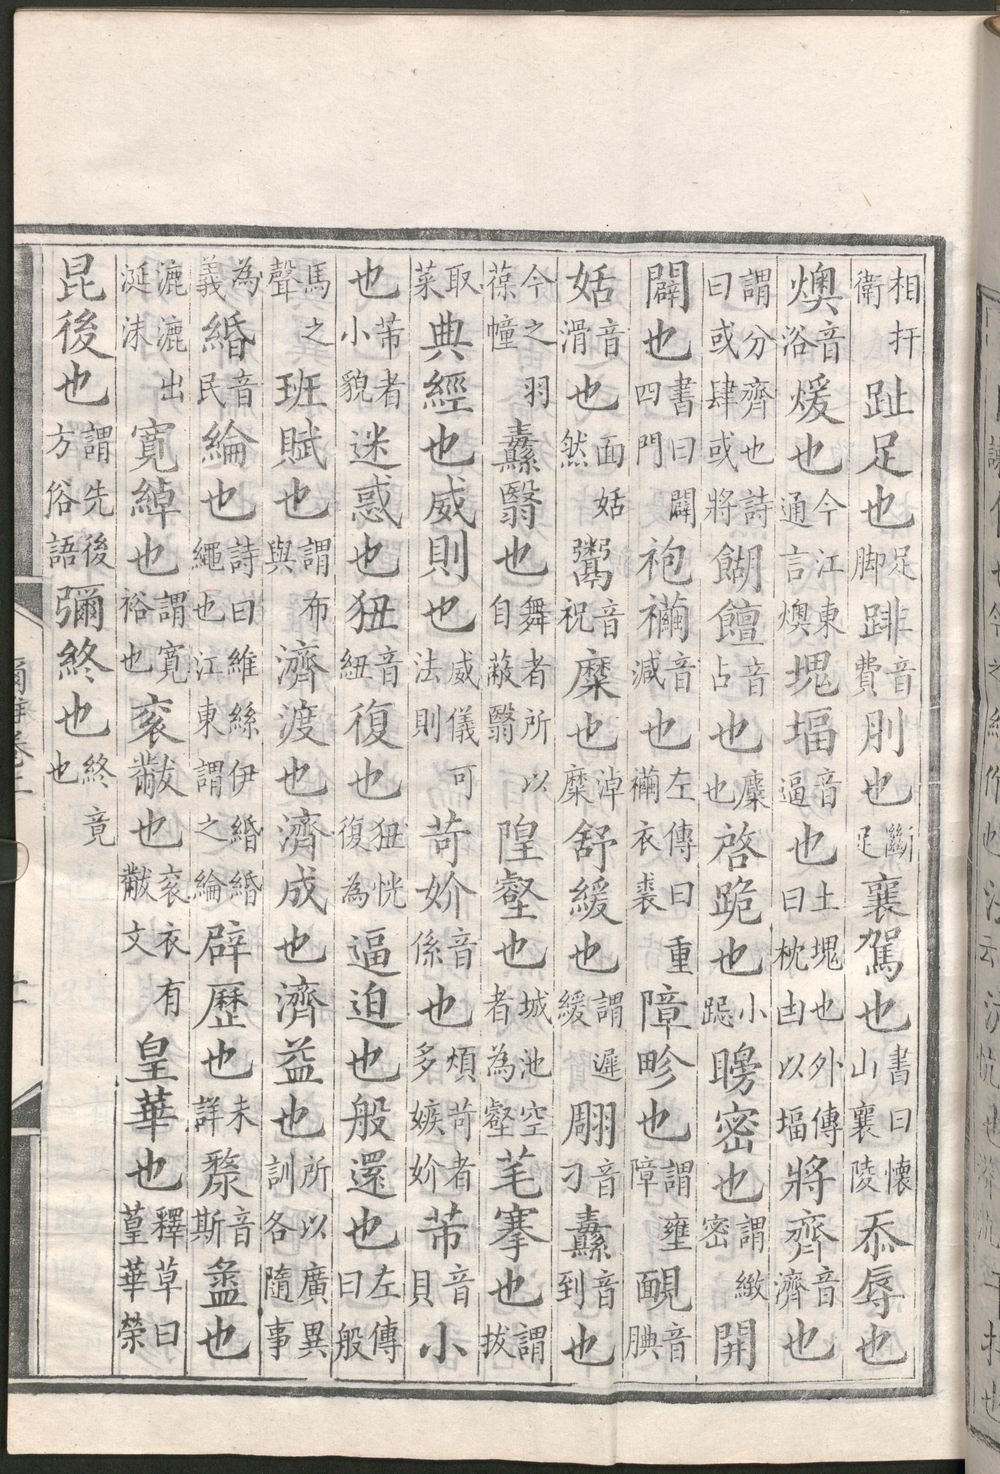 相扞衛趾足也足脚跸音費刖也斷足襄駕也書曰懷山襄陵忝辱也
燠音浴煖也今江東通言燠塊堛音逼也土塊也外傳曰枕甴以堛將齊音濟也
謂分齊也詩曰或肆或將餬饘音占也麋也啓跪也小跽矈密也謂緻密開
闢也書曰闢四門袍襺音減也左傳曰重襺衣裘障畛也謂壅障靦音腆
姡音滑也面姡然鬻音祝糜也淖糜舒緩也謂遲緩翢音刁纛音到也
今之羽葆幢纛翳也舞者所以自蔽翳隍壑也城池空者為壑芼搴也謂拔
取菜典經也威則也威儀可法則苛妎音係也煩苛者多嫉妎芾音貝小
也芾者小貌迷惑也狃音紐復也狃忕復為逼迫也般還也左傳曰般
馬之聲班賦也謂布與濟渡也濟成也濟益也所以廣異訓各隨事
為義緍音民綸也詩曰維絲伊緍緍繩也江東謂之綸辟歷也未詳漦音斯盝也
漉漉出涎沫寬綽也謂寬裕也衮黻也衮衣有黻文皇華也釋草曰葟華榮
昆後也謂先後方俗語彌終也終竟也